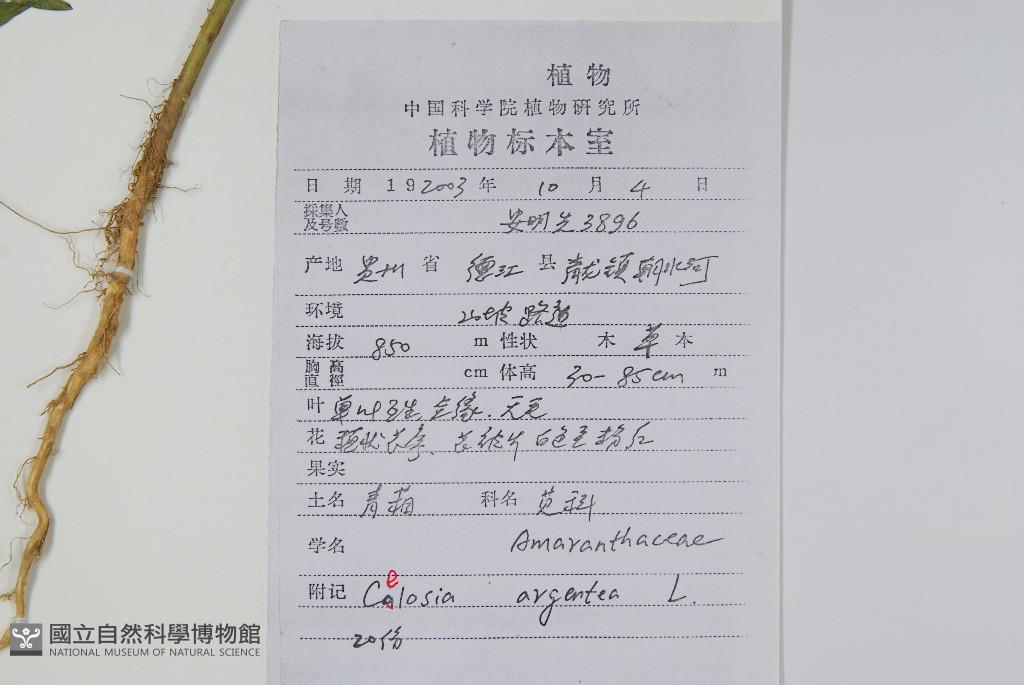 植物
中国科学院植物研究所
植物标本室
日 期 192003年 10 月 4 日
採集人及号数 安明先3896
产地 贵州 省 德江 县 青龙镇朝水河
环境 山坡路边
海拔 850 m 性状 木 草 本
胸高直徑 cm 体高 30-85cm m
叶 单叶互生,全缘.无毛
花 穗状花序、花被片白色至粉红
果实
土名 青葙 科名 苋科
学名 Amaranthaceae
附记 Celosia argentea L.
20份
國立自然科學博物館
NATIONAL MUSEUM OF NATURAL SCIENCE